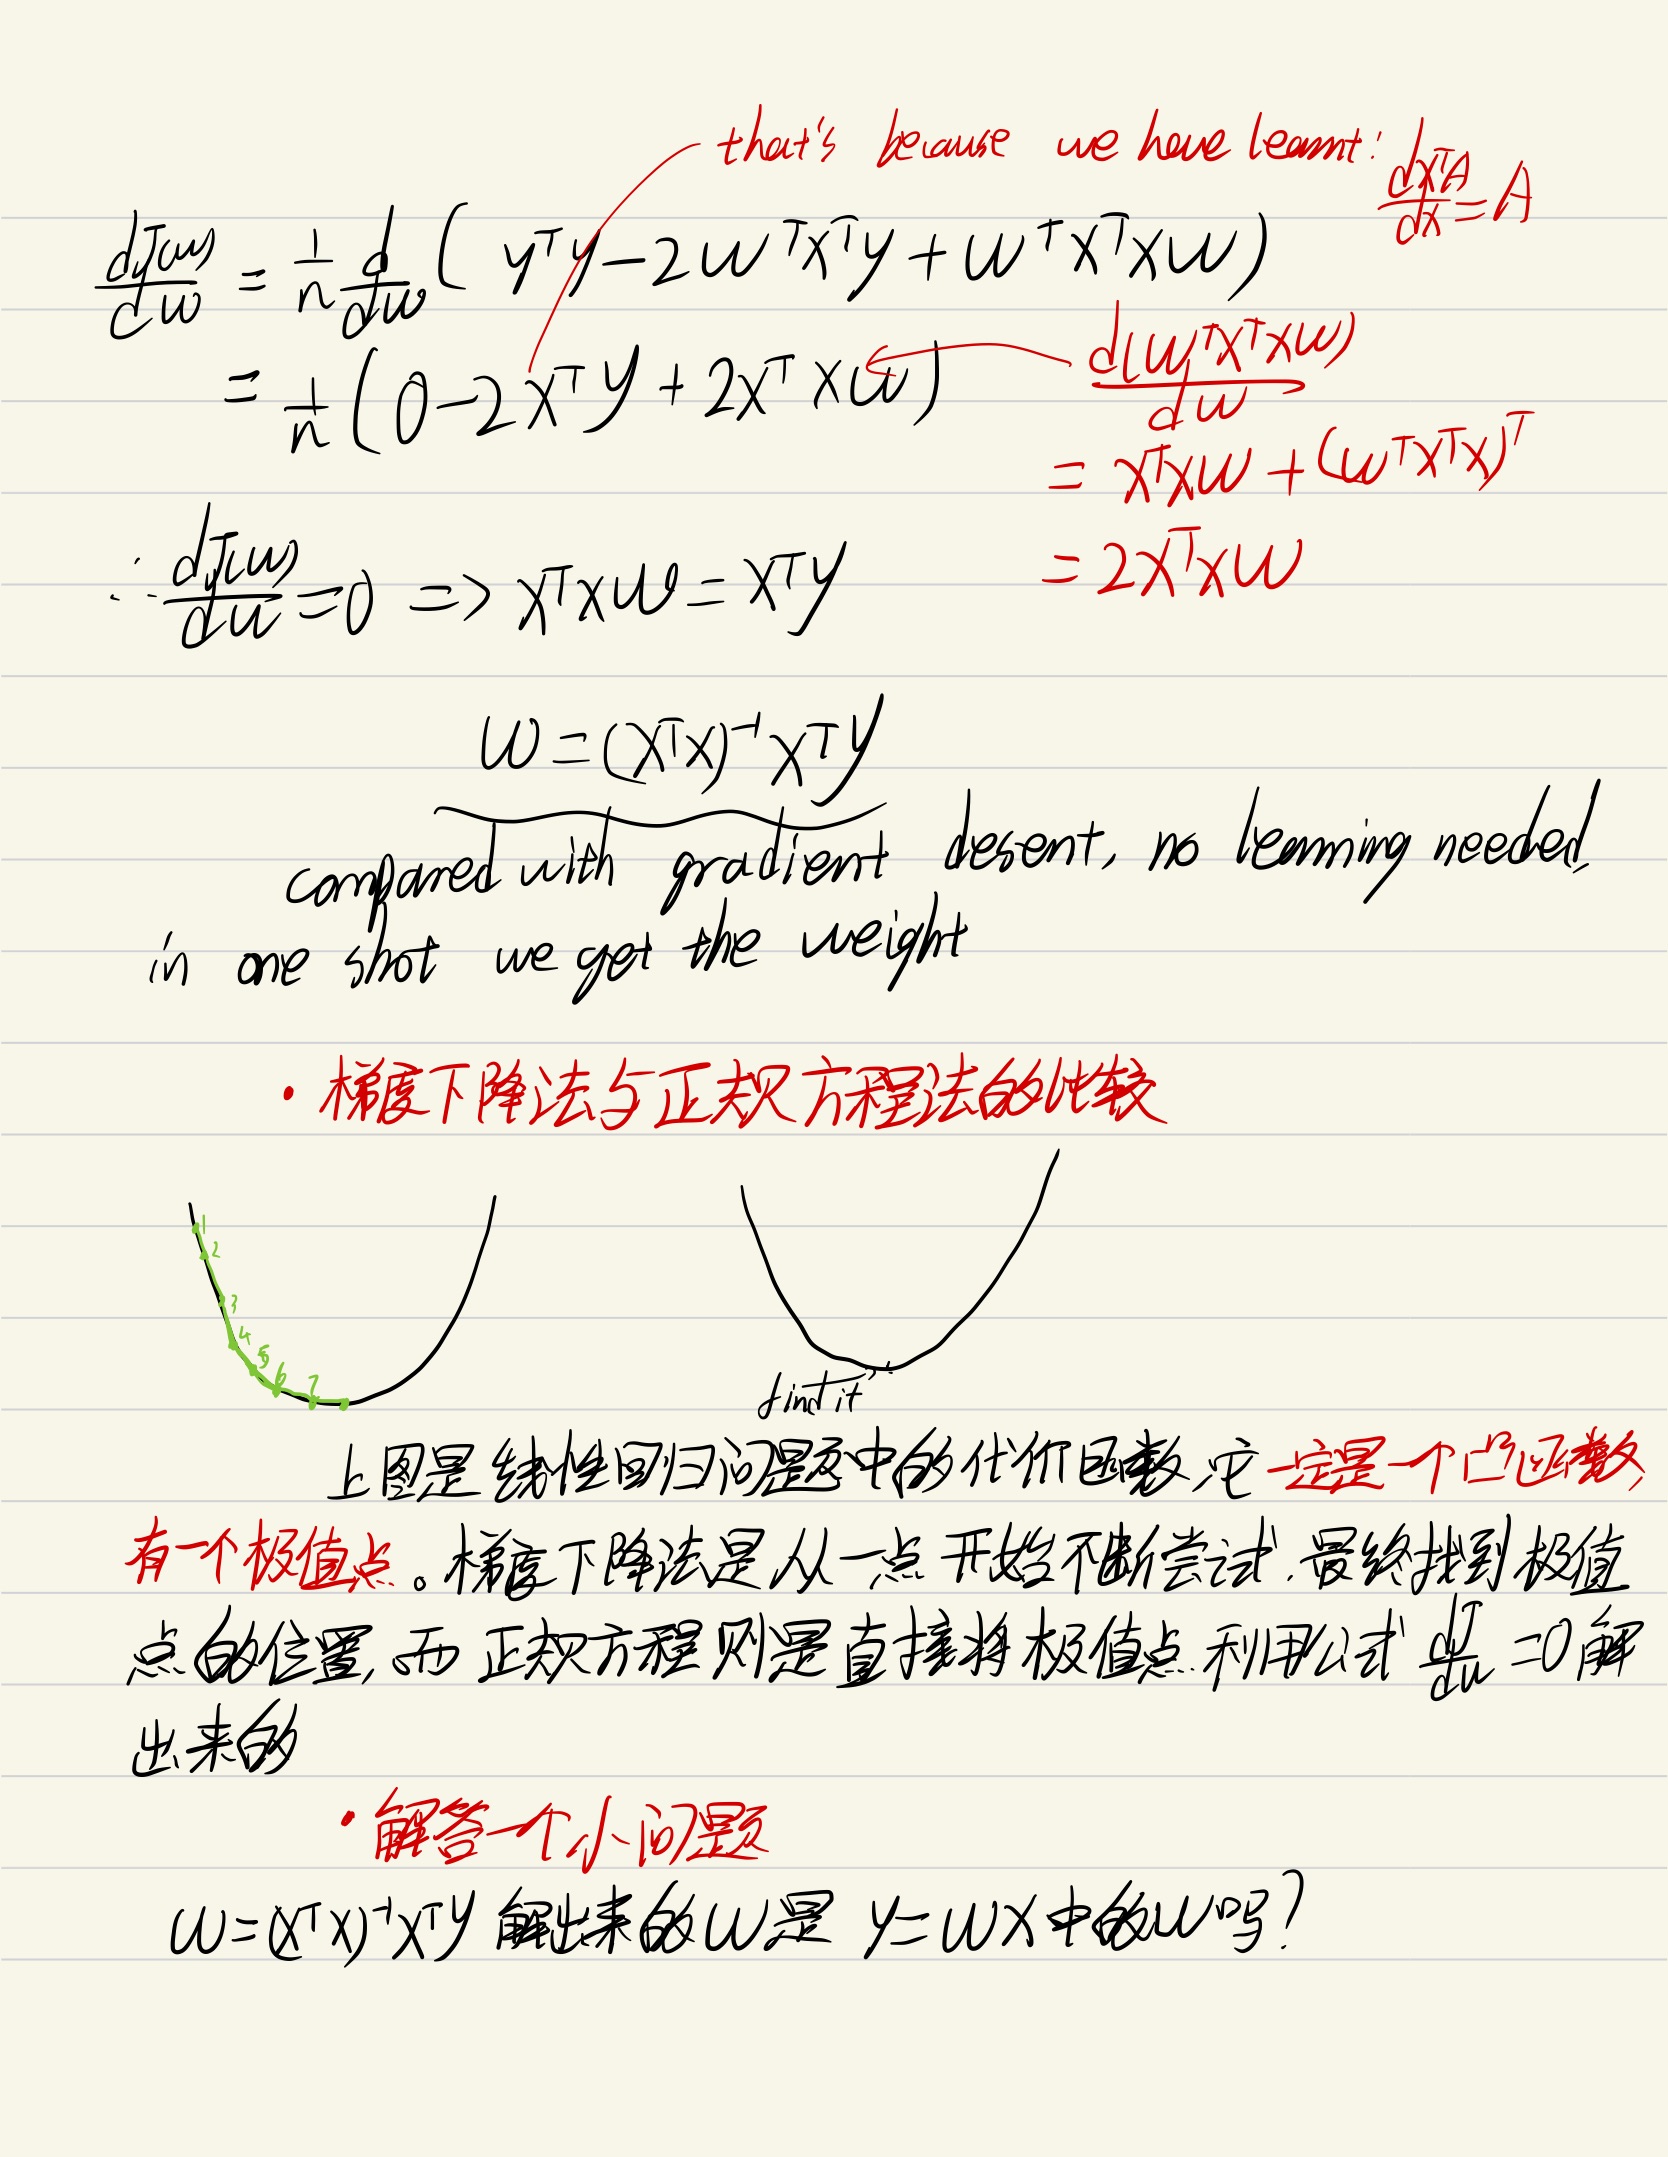 that's because we have learnt: dX^TA/dX = A
dJ(w)/dw = 1/n d/dw ( y^Ty − 2w^TX^Ty + w^TX^TXw )
= 1/n ( 0 − 2X^Ty + 2X^TXw )
d(w^TX^TXw)/dw
= X^TXw + (w^TX^TX)^T
= 2X^TXw
∴ dJ(w)/dw = 0 => X^TXw = X^Ty
w = (X^TX)^-1 X^Ty
compared with gradient desent, no learning needed,
in one shot we get the weight
· 梯度下降法与正规方程法的比较
1
2
3
4
5
6
7
find it
上图是线性回归问题中的代价函数,它一定是一个凸函数,
有一个极值点。梯度下降法是从一点开始不断尝试.最终找到极值
点的位置,而正规方程则是直接将极值点利用公式 dJ/dw = 0 解
出来的
· 解答一个小问题
w = (X^TX)^-1 X^Ty 解出来的w是 y = wx 中的w吗?